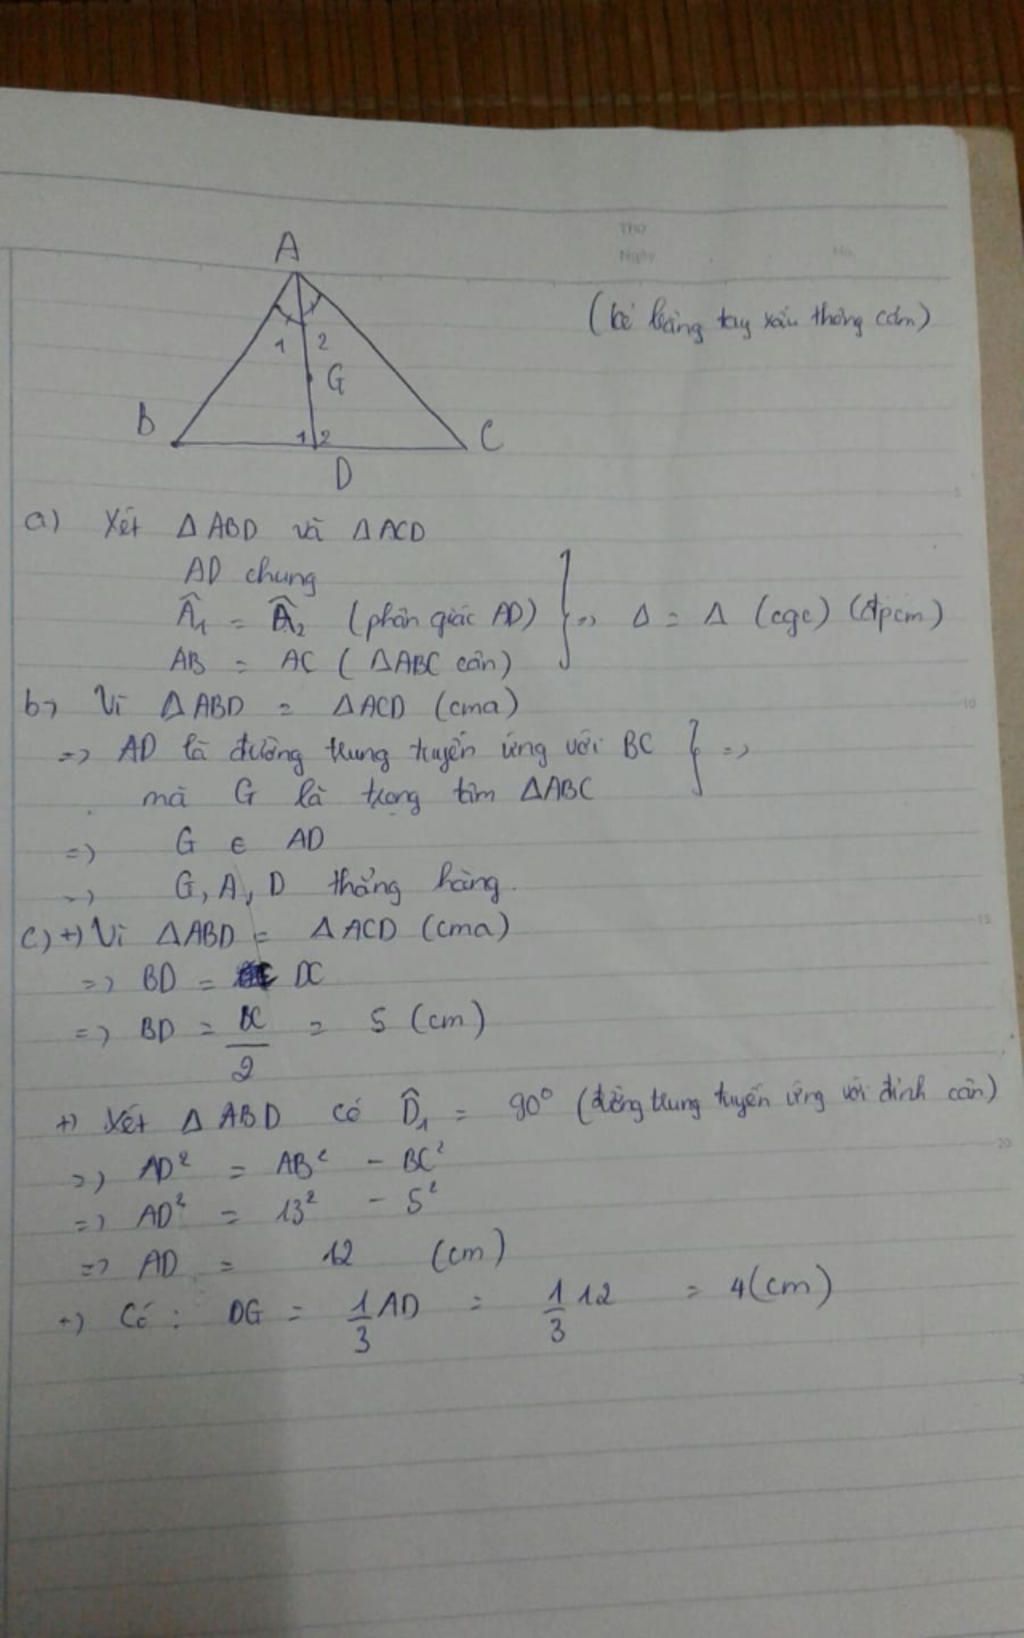 Thứ
Ngày
No.
A
(kẻ bằng tay xấu thông cảm)
1 2
G
B
1 2
C
D
a) Xét Δ ABD và Δ ACD
AD chung
Â₁ = Â₂ (phân giác AD) } => Δ = Δ (cgc) (đpcm)
AB = AC (ΔABC cân)
b) Vì ΔABD = ΔACD (cma)
=> AD là đường trung tuyến ứng với BC } =>
mà G là trọng tâm ΔABC
=> G ∈ AD
=> G, A, D thẳng hàng.
c) +) Vì ΔABD = ΔACD (cma)
=> BD = DC
=> BD = BC/2 = 5 (cm)
+) Xét Δ ABD có D̂₁ = 90° (đường trung tuyến ứng với đỉnh cân)
=> AD² = AB² - BC²
=> AD² = 13² - 5²
=> AD = 12 (cm)
+) Có : DG = 1/3 AD = 1/3 12 = 4(cm)